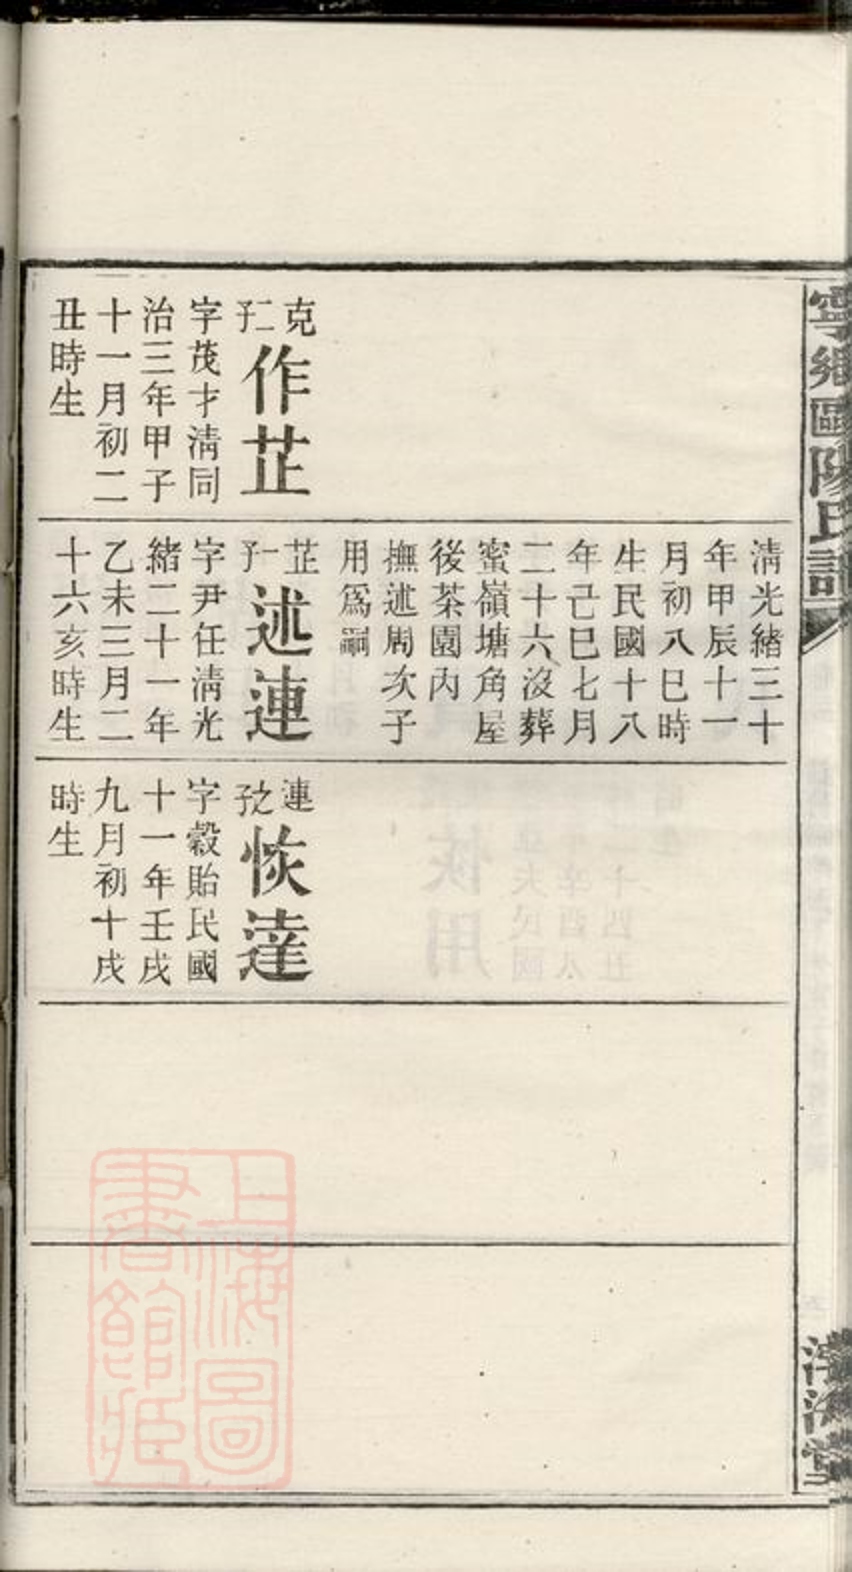 寧鄉歐陽氏譜
克
二子
作芷
字茂才淸同
治三年甲子
十一月初二
丑時生
淸光緒三十
年甲辰十一
月初八巳時
生民國十八
年己巳七月
二十六沒葬
蜜嶺塘角屋
後茶園內
撫述周次子
用爲嗣
芷
一子
述連
字尹任淸光
緒二十一年
乙未三月二
十六亥時生
連
之子
恢達
字穀貽民國
十一年壬戌
九月初十戌
時生
上海圖
書館藏